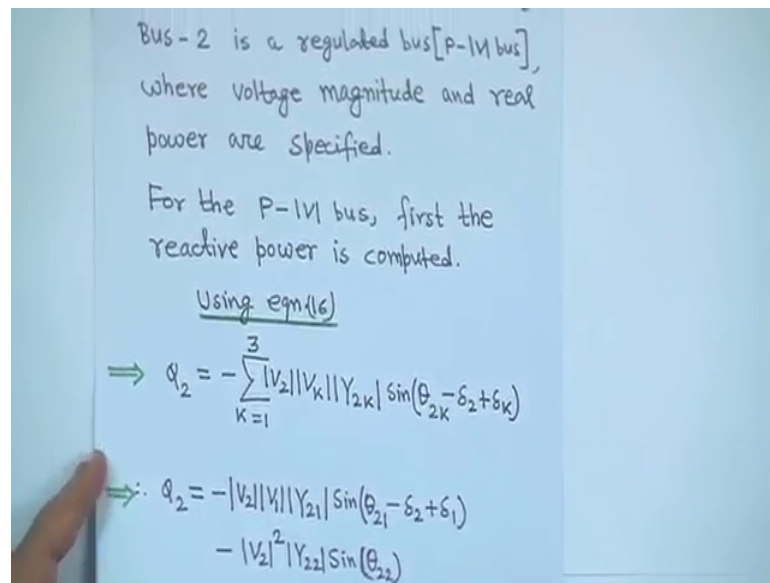 Bus-2 is a regulated bus[P-|V| bus],
where voltage magnitude and real
power are specified.
For the P-|V| bus, first the
reactive power is computed.
Using eqn.(16)
⇒ Q₂ = -∑_{K=1}^{3} |V₂||V_K||Y_{2K}| Sin(θ_{2K}-δ₂+δ_K)
⇒∴ Q₂ = -|V₂||V₁||Y₂₁| Sin(θ₂₁-δ₂+δ₁)
- |V₂|²|Y₂₂| Sin(θ₂₂)